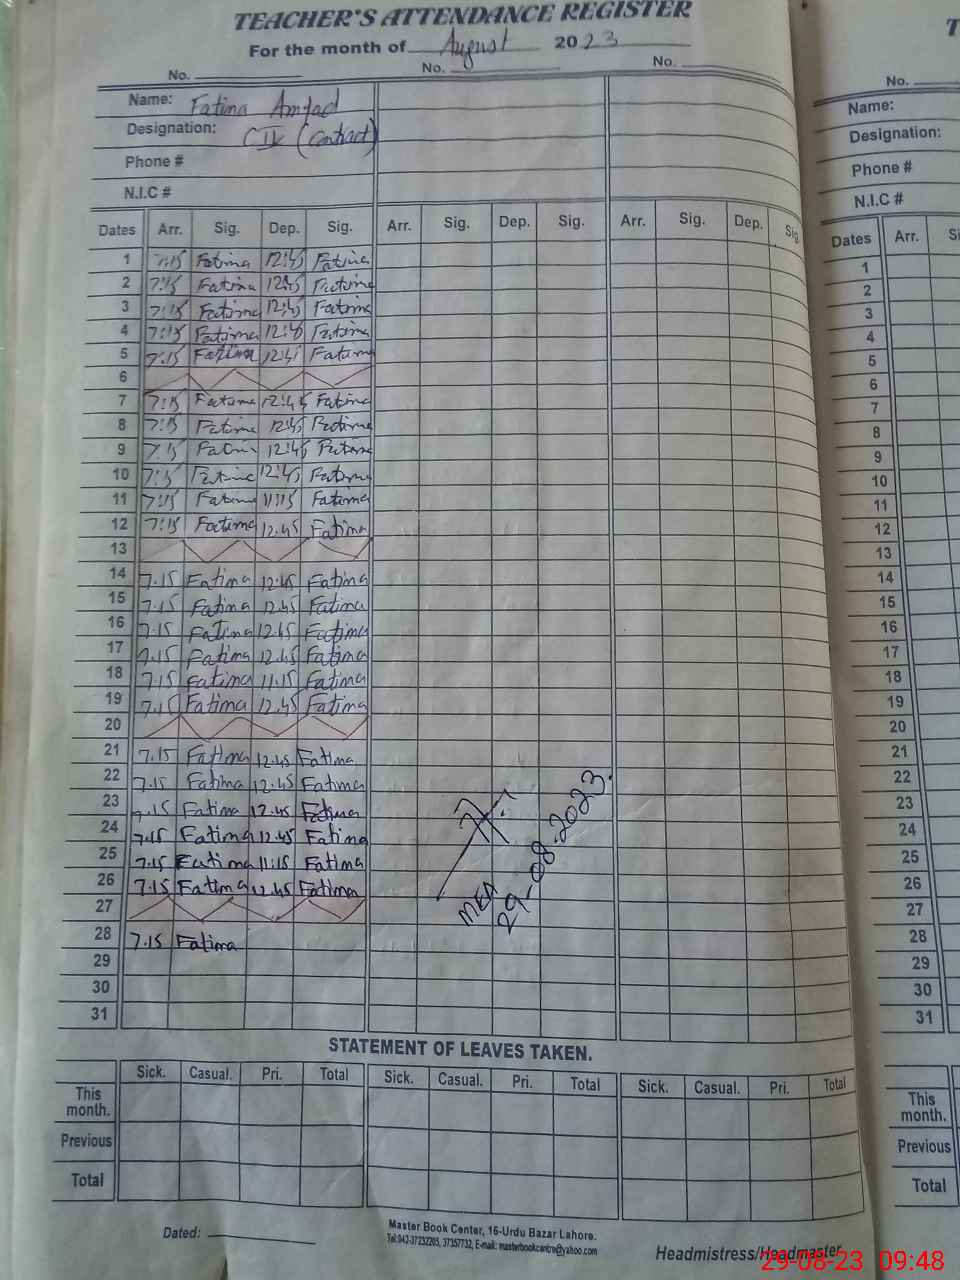 TEACHER'S ATTENDANCE REGISTER
For the month of August 2023
No. No. No.
Name: Fatina Amjad
Designation: (Contract)
Phone #
N.I.C #
Dates Arr. Sig. Dep. Sig. Arr. Sig. Dep. Sig. Arr. Sig. Dep. Sig.
1 7:15 Fatima 12:45 Fatima
2 7:15 Fatima 12:45 Fatima
3 7:15 Fatima 12:45 Fatima
4 7:15 Fatima 12:45 Fatima
5 7:15 Fatima 12:45 Fatima
6
7 7:15 Fatima 12:45 Fatima
8 7:15 Fatima 12:45 Fatima
9 7:15 Fatima 12:45 Fatima
10 7:15 Fatima 12:45 Fatima
11 7:15 Fatima 11:15 Fatima
12 7:15 Fatima 12.45 Fatima
13
14 7.15 Fatima 12.45 Fatima
15 7.15 Fatima 12.45 Fatima
16 7.15 Fatima 12.45 Fatima
17 7.15 Fatima 12.45 Fatima
18 7.15 Fatima 11.15 Fatima
19 7.15 Fatima 12.45 Fatima
20
21 7.15 Fatima 12.45 Fatima
22 7.15 Fatima 12.45 Fatima
23 7.15 Fatima 12.45 Fatima
24 7.15 Fatima 12.45 Fatima
25 7.15 Fatima 11.15 Fatima
26 7.15 Fatima 12.45 Fatima
27
28 7.15 Fatima
29
30
31
MEA
29-08-2023.
STATEMENT OF LEAVES TAKEN.
Sick. Casual. Pri. Total Sick. Casual. Pri. Total Sick. Casual. Pri. Total
This month.
Previous
Total
Dated:
Master Book Center, 16-Urdu Bazar Lahore.
Tel:042-37232205, 37357732, E-mail: masterbookcentre@yahoo.com
Headmistress/Headmaster
No.
Name:
Designation:
Phone #
N.I.C #
Dates Arr.
1
2
3
4
5
6
7
8
9
10
11
12
13
14
15
16
17
18
19
20
21
22
23
24
25
26
27
28
29
30
31
Sick.
This month.
Previous
Total
29-08-23 09:48